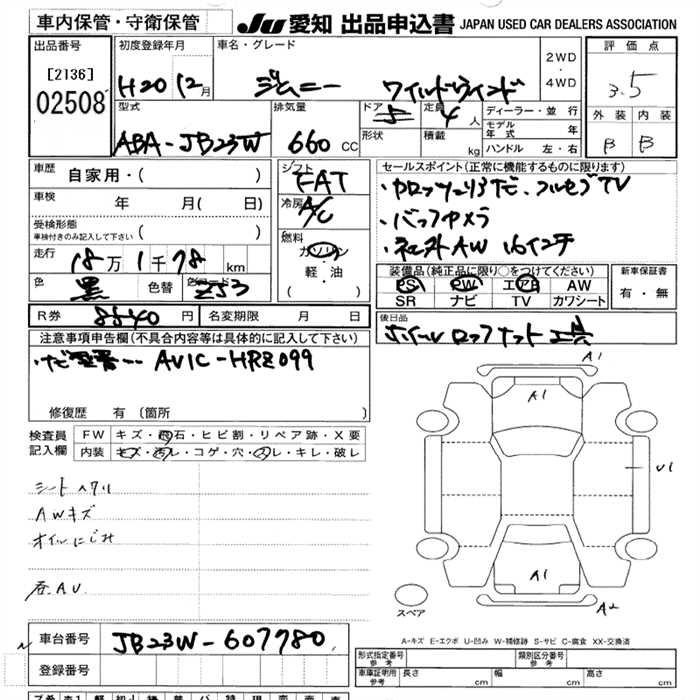 車内保管・守衛保管 JU 愛知 出品申込書 JAPAN USED CAR DEALERS ASSOCIATION
出品番号
[2136]
02508
初度登録年月
H20 12月
車名・グレード
ジムニー ワイルドウインド
2WD
4WD
評価点
3.5
外装 内装
B B
型式
ABA-JB23W
排気量
660 CC
ドア
5
形状
定員
4人
積載
kg
ディーラー・並行
モデル年式 年
ハンドル 左・右
車歴 自家用・( )
車検 年 月( 日)
受検形態
車検付きのみ記入して下さい ( )
走行
18万1千78 km
色
黒
色替
カラーコード
ZJ3
シフト
FAT
冷房
A/C
燃料
ガソリン
軽・油
( )
セールスポイント(正常に機能するものに限ります)
・カロッツェリアナビ、フルセグTV
・バックカメラ
・社外AW 16インチ
装備品(純正品に限り○をつけてください)
PS PW エアB AW
SR ナビ TV カワシート
新車保証書
有・無
R券 8540円 名変期限 月 日
後日品
ホイールロックナット工具
注意事項申告欄(不具合内容等は具体的に記入して下さい)
・ナビ型番… AVIC-HRZ099
修復歴 有 〔箇所 〕
検査員記入欄
FW キズ・飛石・ヒビ割・リペア跡・X要
内装 キズ・汚レ・コゲ・穴・スレ・キレ・破レ
シートヘタリ
AWキズ
オイルにじみ
A1
A1
U1
A1
A2
スペア
A-キズ E-エクボ U-凹み W-補修跡 S-サビ C-腐食 XX-交換済
車台番号 JB23W-607780
登録番号
形式指定番号
参考
類別区分番号
参考
車庫証明用
参考
長さ cm 幅 cm 高さ cm